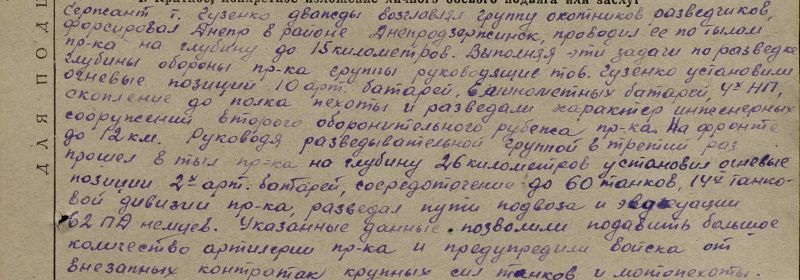 1. Краткое, конкретное изложение личного боевого подвига или заслуг
ДЛЯ ПОДШ
Сержант т. Гузенко дважды возглавлял группу охотников разведчиков,
форсировав Днепр в районе Днепродзержинск, проводил её по тылам
пр-ка на глубину до 15 километров. Выполняя эти задачи по разведке
глубины обороны пр-ка группы руководящие тов. Гузенко установили
огневые позиции 10 арт. батарей, 6 минометных батарей, 4х НП,
скопление до полка пехоты и разведали характер инженерных
сооружений второго оборонительного рубежа пр-ка. На фронте
до 12 км. Руководя разведывательной группой в третий раз
прошел в тыл пр-ка на глубину 26 километров установил огневые
позиции 2х арт. батарей, сосредоточение до 60 танков, 14й танко-
вой дивизии пр-ка, разведал пути подвоза и эвакуации
62 ПД немцев. Указанные данные позволили подавить большое
количество артилерии пр-ка и предупредили войска от
внезапных контратак крупных сил танков и мотопехоты.